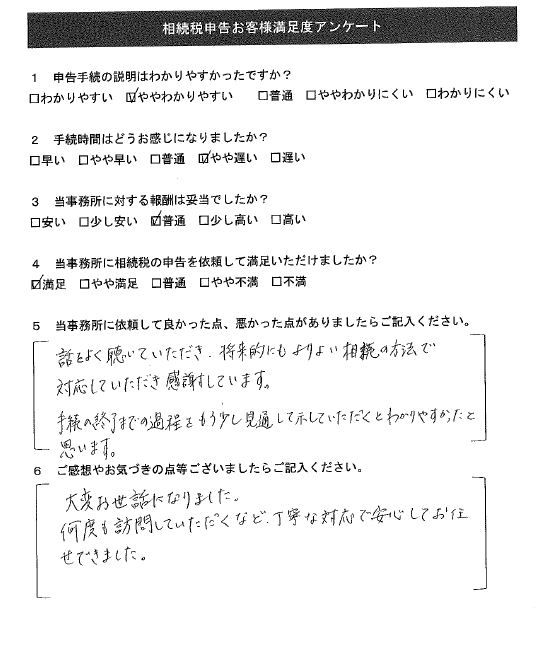 相続税申告お客様満足度アンケート
1 申告手続の説明はわかりやすかったですか？
□わかりやすい ☑ややわかりやすい □普通 □ややわかりにくい □わかりにくい
2 手続時間はどうお感じになりましたか？
□早い □やや早い □普通 ☑やや遅い □遅い
3 当事務所に対する報酬は妥当でしたか？
□安い □少し安い ☑普通 □少し高い □高い
4 当事務所に相続税の申告を依頼して満足いただけましたか？
☑満足 □やや満足 □普通 □やや不満 □不満
5 当事務所に依頼して良かった点、悪かった点がありましたらご記入ください。
話をよく聴いていただき、将来的にもよりよい相続の方法で
対応していただき感謝しています。
手続の終了までの過程をもう少し見通して示していただくとわかりやすかったと
思います。
6 ご感想やお気づきの点等ございましたらご記入ください。
大変お世話になりました。
何度も訪問していただくなど、丁寧な対応で安心してお任
せできました。